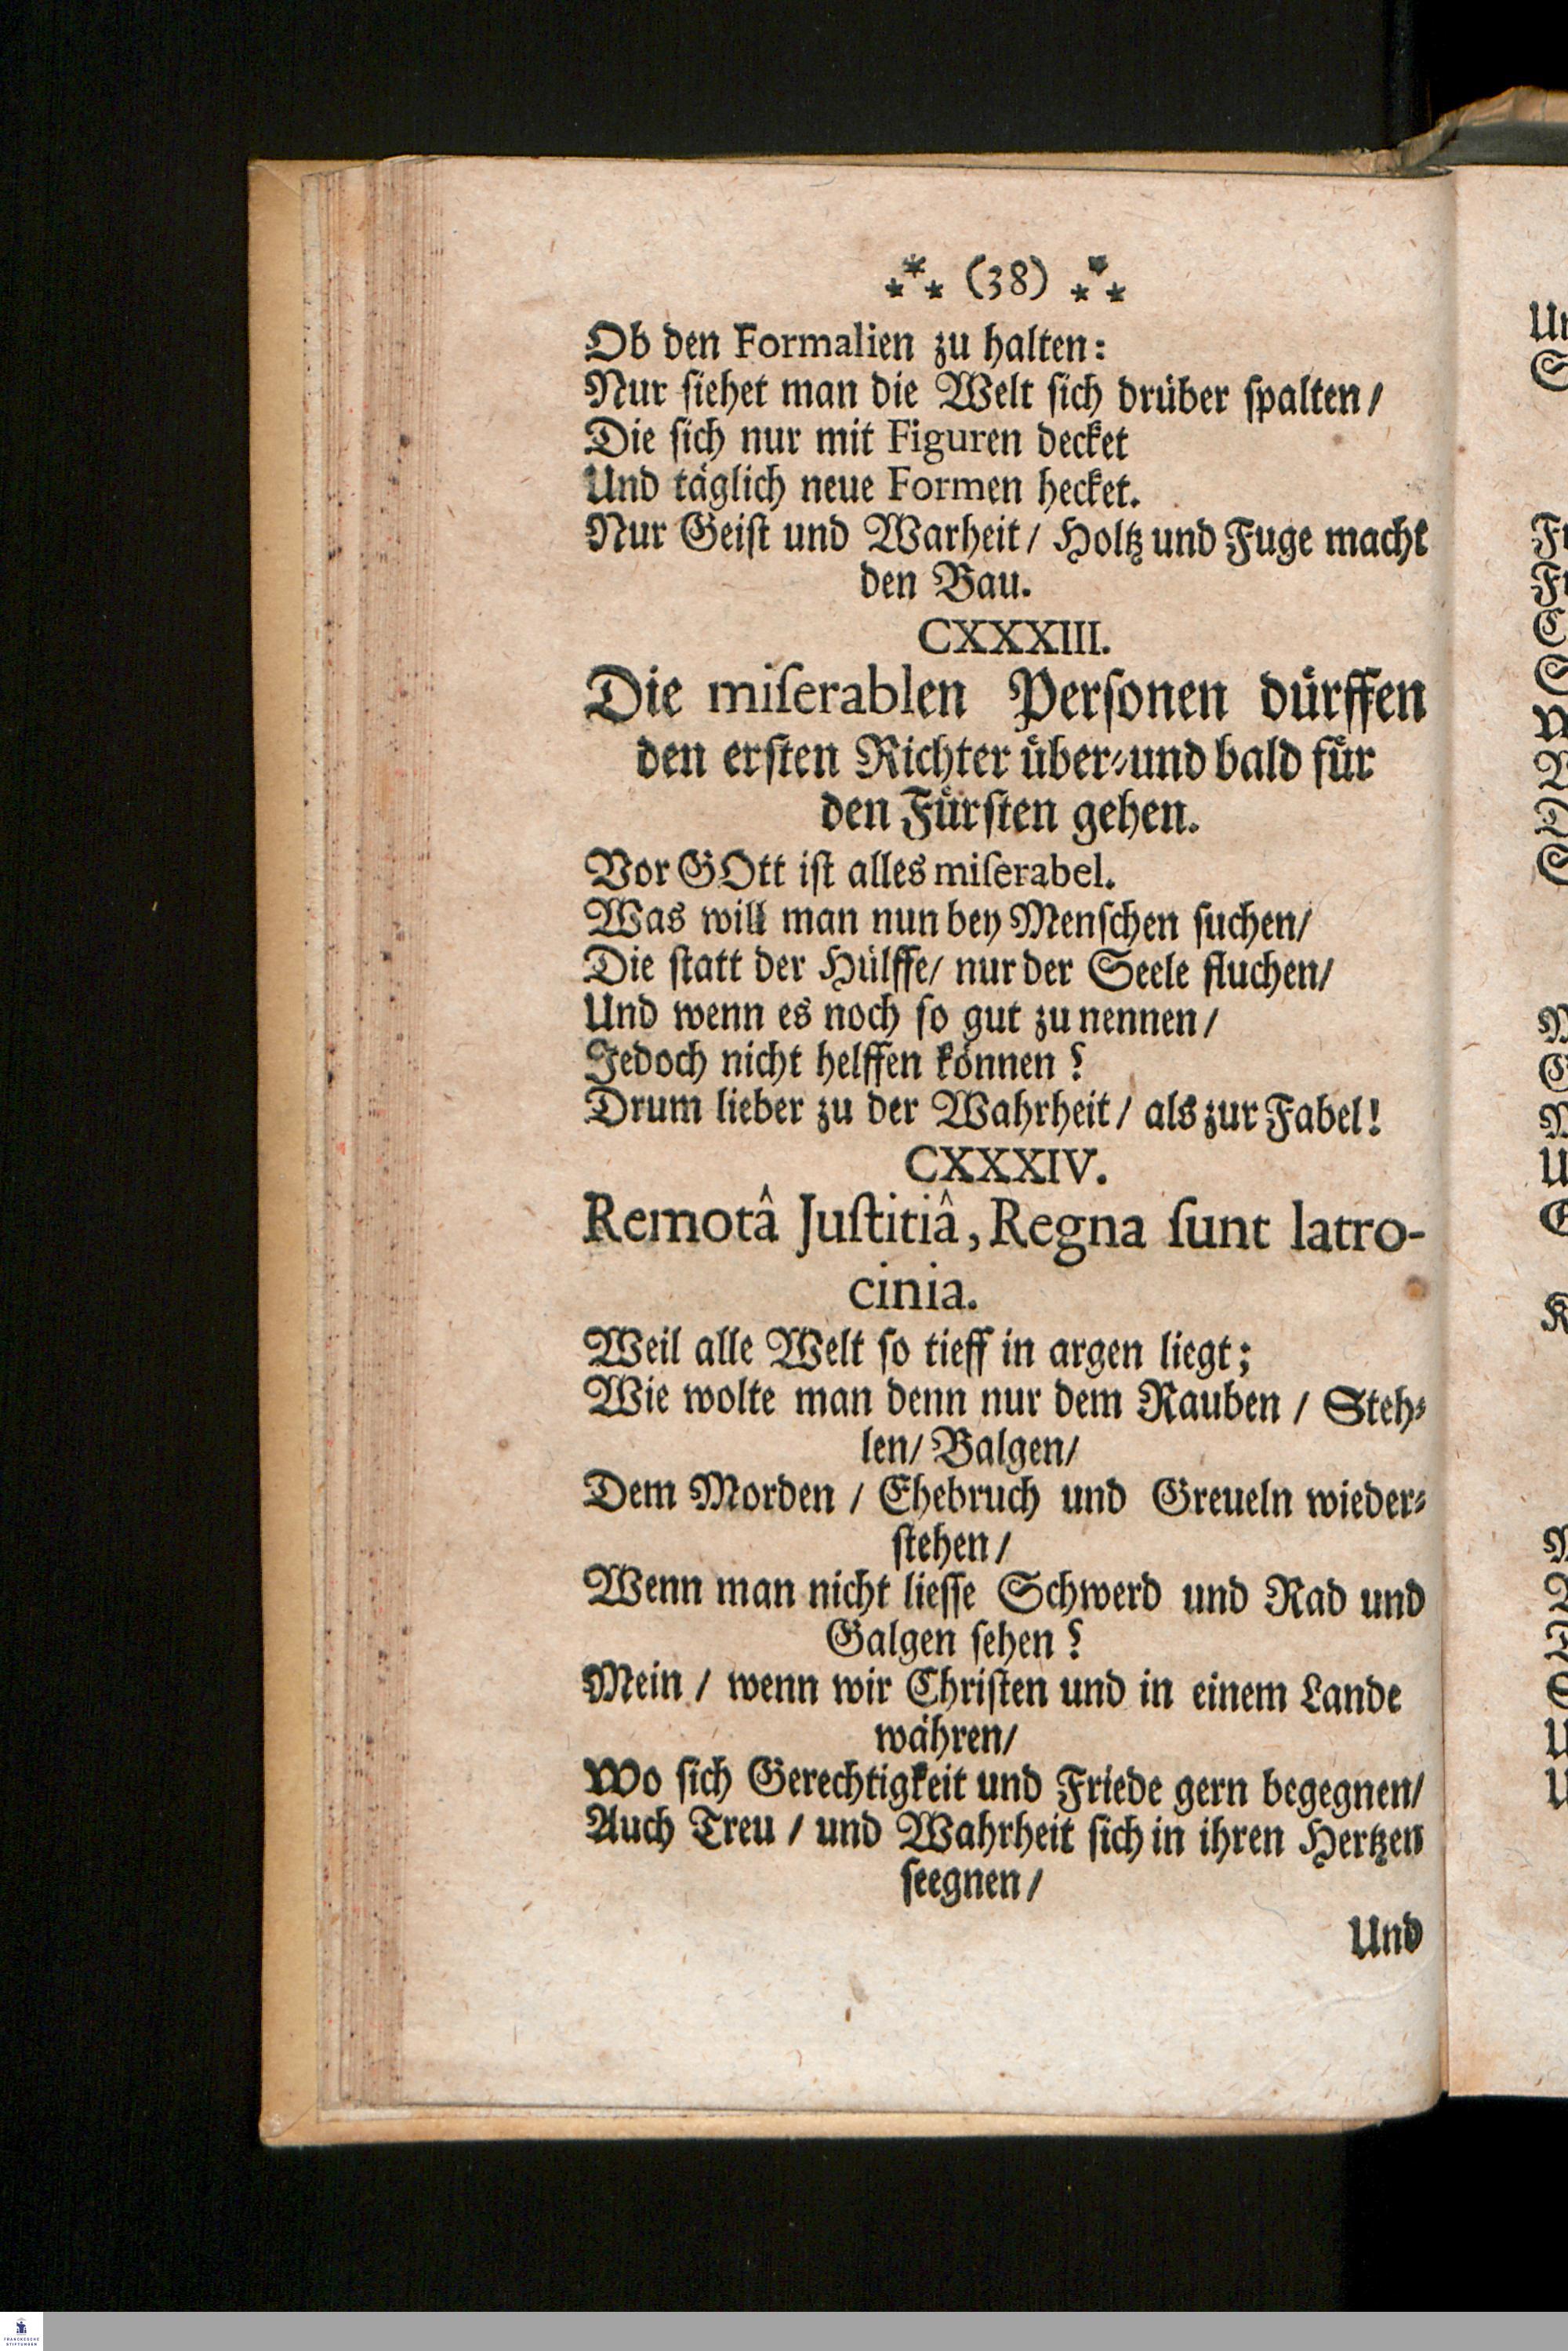 ⁂ (38) ⁂
Ob den Formalien zu halten:
Nur ſiehet man die Welt ſich drüber ſpalten/
Die ſich nur mit Figuren decket
Und täglich neue Formen hecket.
Nur Geiſt und Warheit/ Holtz und Fuge macht
den Bau.
CXXXIII.
Die miſerablen Perſonen dürffen
den erſten Richter über-und bald für
den Fürſten gehen.
Vor GOtt iſt alles miſerabel.
Was will man nun bey Menſchen ſuchen/
Die ſtatt der Hülffe/ nur der Seele fluchen/
Und wenn es noch ſo gut zu nennen/
Jedoch nicht helffen können?
Drum lieber zu der Wahrheit/ als zur Fabel!
CXXXIV.
Remotâ Juſtitiâ, Regna ſunt latro-
cinia.
Weil alle Welt ſo tieff in argen liegt;
Wie wolte man denn nur dem Rauben / Steh-
len/ Balgen/
Dem Morden / Ehebruch und Greueln wieder-
ſtehen/
Wenn man nicht lieſſe Schwerd und Rad und
Galgen ſehen?
Mein / wenn wir Chriſten und in einem Lande
währen/
Wo ſich Gerechtigkeit und Friede gern begegnen/
Auch Treu / und Wahrheit ſich in ihren Hertzen
ſeegnen/
Und
FRANCKESCHE
STIFTUNGEN